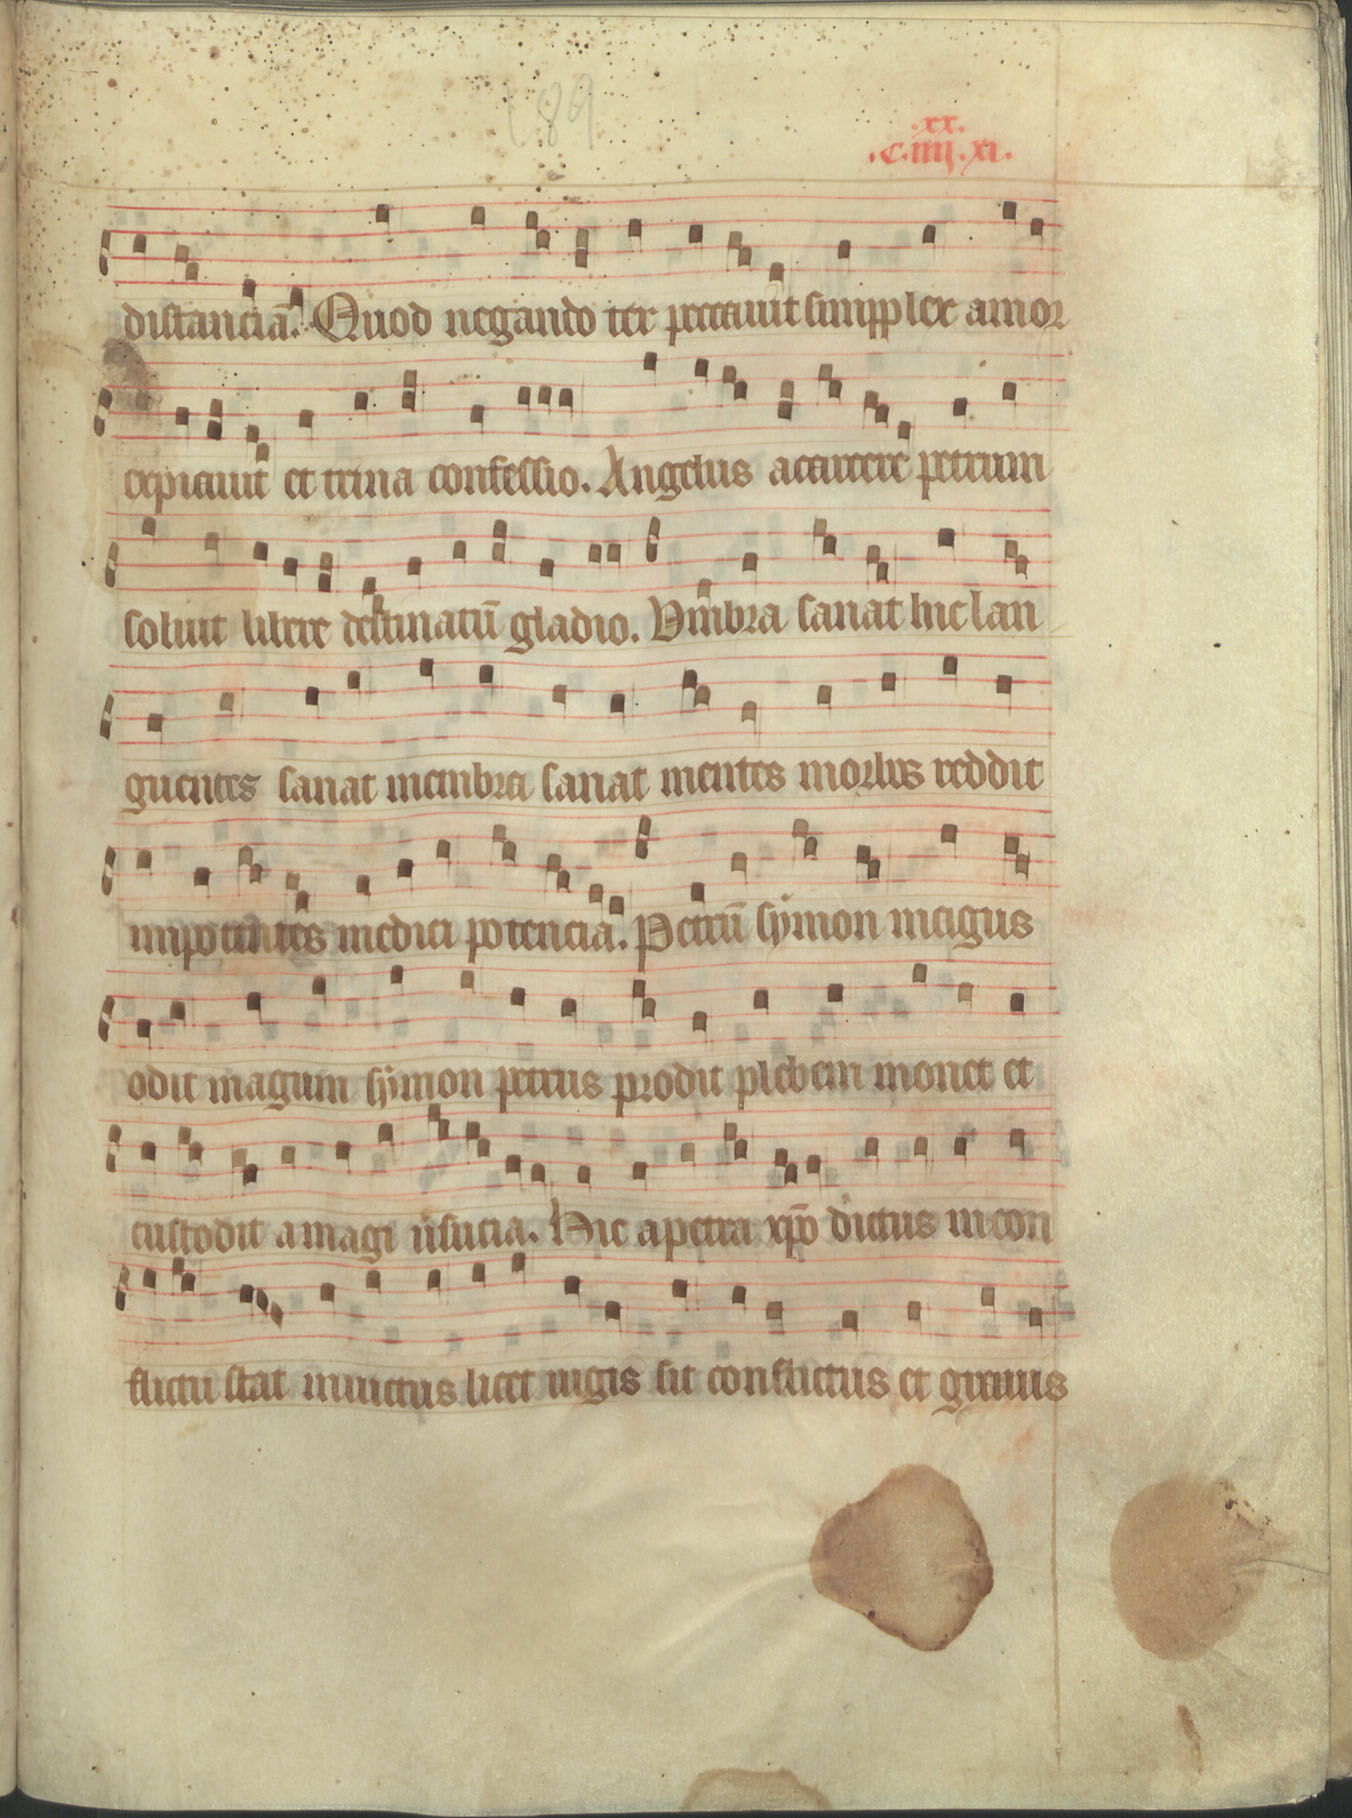 189
.xx.
.c.iiij.xi.
distancia᷑. Quod negando ter peccauit simpplex amor
expiauit et trina confessio. Angelus a carcere petrum
soluit libere destinatū gladio. Vmbra sanat hic lan
guentes sanat membra sanat mentes morbos reddit
impotentes medici potencia. Petrū symon magus
odit magum symon petrus prodit plebem monet et
custodit a magi
Hic a petra xp̄o dictus in con
flictu stat inuictus licet iugis sit conflictus et grauis